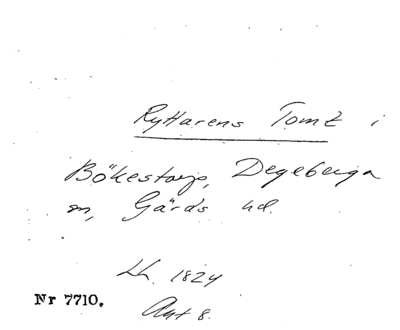 Ryttarens Tomt i
Bökestorp, Degeberga
sn, Gärds hd.
Lh. 1824
Nr 7710.
Akt 8.